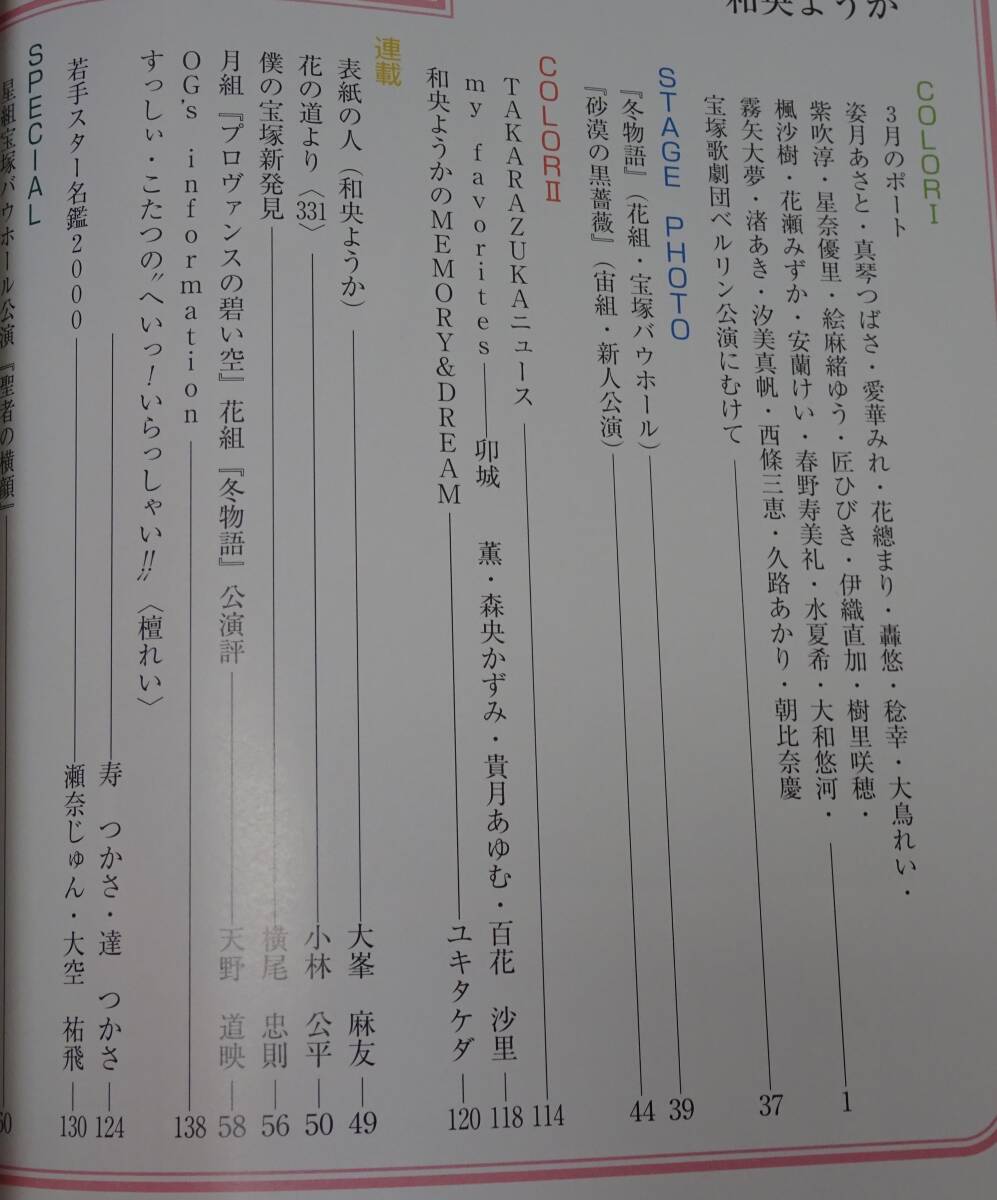 和央ようか
COLOR I
3月のポート
姿月あさと・真琴つばさ・愛華みれ・花總まり・轟悠・稔幸・大鳥れい・
紫吹淳・星奈優里・絵麻緒ゆう・匠ひびき・伊織直加・樹里咲穂・
楓沙樹・花瀬みずか・安蘭けい・春野寿美礼・水夏希・大和悠河・
霧矢大夢・渚あき・汐美真帆・西條三恵・久路あかり・朝比奈慶 1
宝塚歌劇団ベルリン公演にむけて 37
STAGE PHOTO
『冬物語』(花組・宝塚バウホール) 39
『砂漠の黒薔薇』(宙組・新人公演) 44
COLOR II
TAKARAZUKAニュース 114
my favorites 卯城 薫・森央かずみ・貴月あゆむ・百花 沙里 118
和央ようかのMEMORY&DREAM ユキタケダ 120
連載
表紙の人(和央ようか) 大峯 麻友 49
花の道より〈331〉 小林 公平 50
僕の宝塚新発見 横尾 忠則 56
月組『プロヴァンスの碧い空』花組『冬物語』公演評 天野 道映 58
OG's information 138
すっしぃ・こたつの"へいっ!いらっしゃい!!〈檀れい〉
寿 つかさ・達 つかさ 124
若手スター名鑑2000 瀬奈じゅん・大空 祐飛 130
SPECIAL
星組宝塚バウホール公演『聖者の横顔』